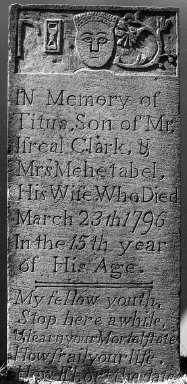 IN Memory of
Titus, Son of Mr.
Isreal Clark, &
Mrs. Mehetabel,
His Wife, Who Died
March 23th 1796
In the 15th year
of His Age.
My fellow youth,
Stop here awhile,
& learn your Mortal state
How frail your life,
How Short